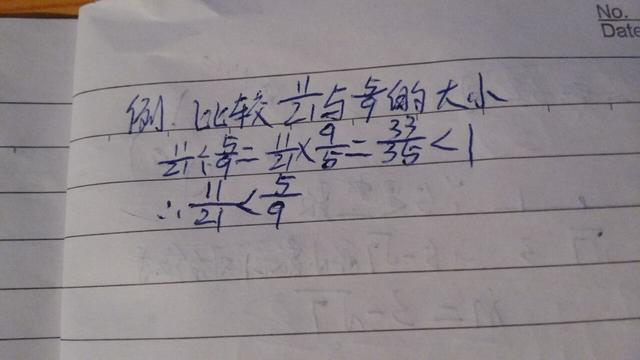 No.
Date
例. 比较 11/21 与 5/9 的大小
11/21 ÷ 5/9 = 11/21 × 9/5 = 33/35 < 1
∴ 11/21 < 5/9